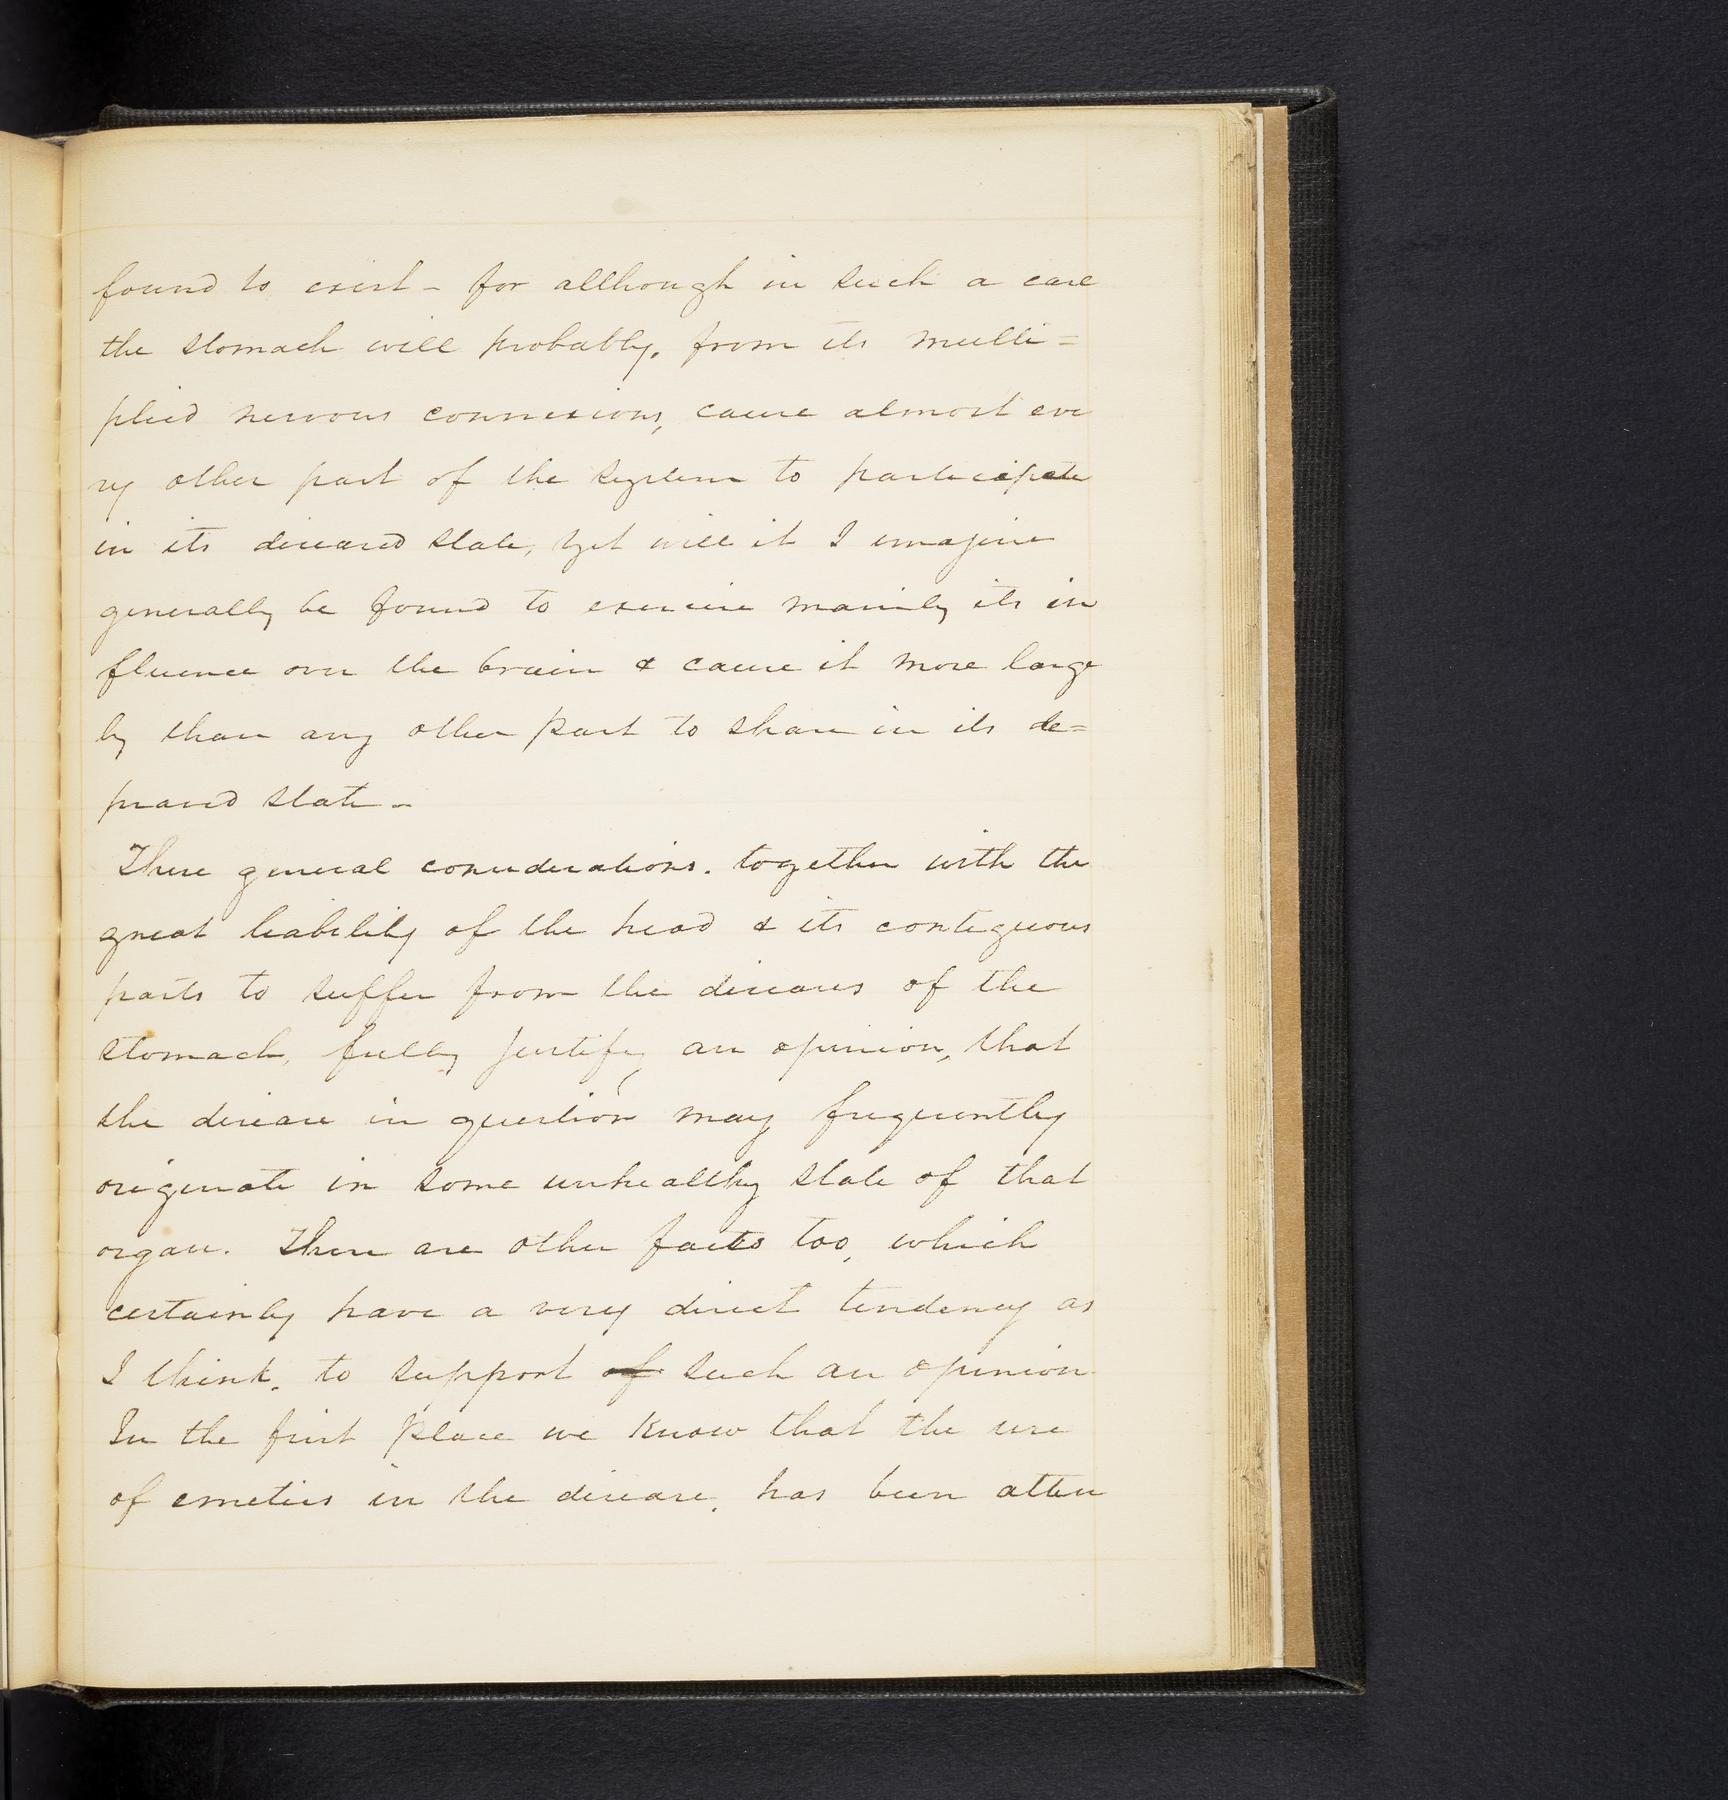 found to exist - for although in such a case
the stomach will probably, from its multi=
plied nervous connexions, cause almost eve
ry other part of the system to participate
in its diseased state, yet will it I imagine
generally be found to exercise mainly its in
fluence over the brain & cause it more large
ly than any other part to share in its de=
praved state -
These general considerations, together with the
great liability of the head & its contiguous
parts to suffer from the diseases of the
stomach, fully justify an opinion, that
the disease in question may frequently
originate in some unhealthy state of that
organ. There are other facts too, which
certainly have a very direct tendency as
I think, to support of such an opinion
In the first place we know that the use
of emetics in the disease, has been atten